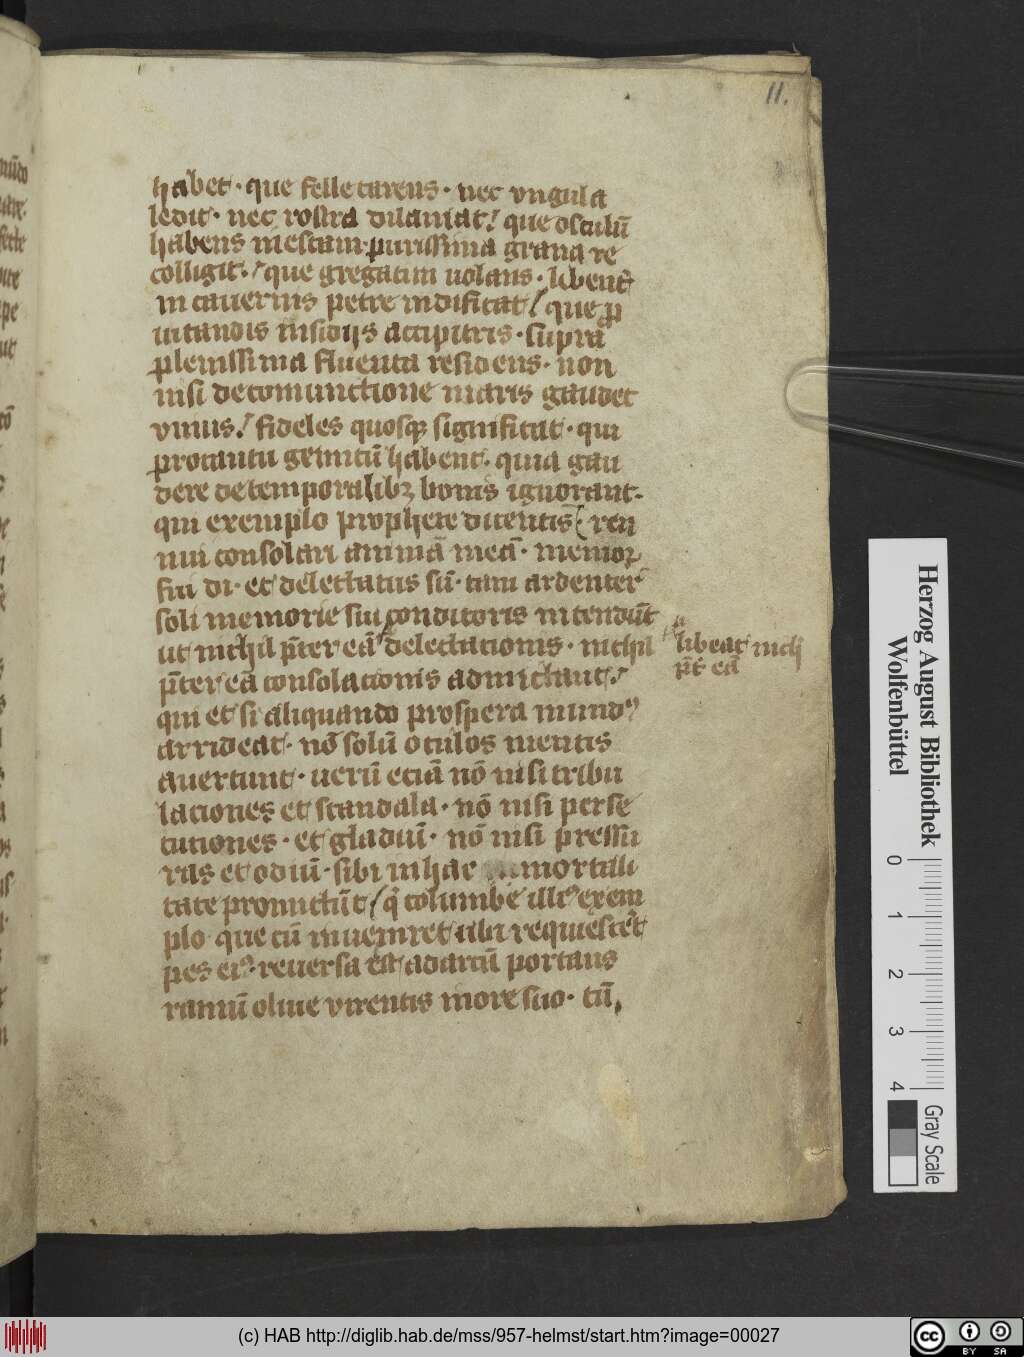 11.
habet · que felle carens · nec vngula
ledit · nec rostra dilaniat / que osculū
habens mestam purissima grana re
colligit · / que gregatim uolans · libent̄
in cauernis petre nidificat / que p̄
uitandis insidijs accipitris · supra
plenissima fluenta residens · non
nisi de comunctione maris gaudet
vnius / fideles quosq; significat · qui
pro cantu gemitū habent · quia gau
dere de temporalibꝫ bonis ignorant ·
qui exemplo prophete dicentis ( ren
nui consolari animā meā · memoꝝ
fui di · et delectatus sū · tam ardenter
soli memorie sui conditoris intendūt
ut nichil p̄ter eā delectationis · nichil
libeat nichil
p̄t eā
p̄ter eā consolacionis admictant /
qui et si aliquando prospera mundꝰ
arrideat · nō solū oculos mentis
auertunt · uerū eciā nō nisi tribu
laciones et scandala · nō nisi perse
cuciones · et gladiū · nō nisi pressu
ras et odiū · sibi in hac mortali
tate promictūt ( q̄ columbe illiꝰ exem
plo que cū inueniret ubi requiescēt
pes eiꝰ · reuersa est ad arcū portans
ramū oliue virentis more suo · tū
Herzog August Bibliothek
Wolfenbüttel
0 1 2 3 4
Gray Scale
(c) HAB http://diglib.hab.de/mss/957-helmst/start.htm?image=00027
cc BY SA